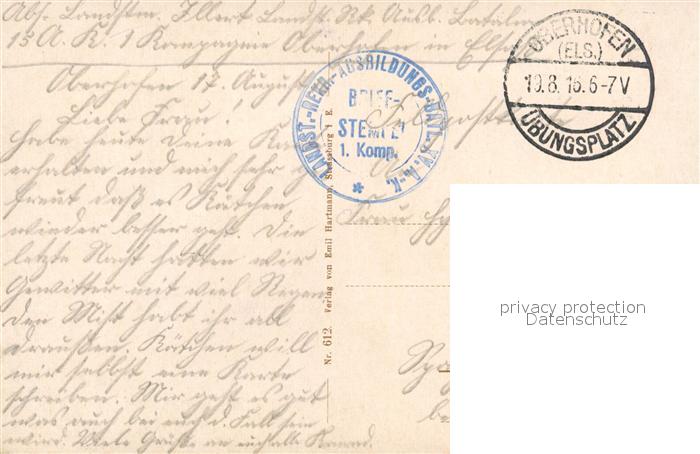 Abs. Landstm. Illert Landst. Rk. Ausb. Batailn
15 A. K. 1 Kompagnie Oberhofen in Elsaß
Oberhofen 17. August
Feldpostkarte
Liebe Frau!
habe heute deine
erhalten und mich sehr
freut daß es Kätchen
wieder besser geht. Die
letzte Nacht hatten wir
Gewitter mit viel Regen
den Mist habt ihr all
draußen. Kätchen will
mir selbst eine Karte
schreiben. Mir geht es gut
was auch bei euch d. Fall sein
wird. Viele Grüße an euch alle
Frau
LANDST.-REKR.-AUSBILDUNGS-BATL.
BRIEF-
STEMPEL
1. Komp.
OBERHOFEN
(ELS.)
19.8.15.6-7V
ÜBUNGSPLATZ
Nr. 612. Verlag von Emil Hartmann, Strassburg i. E.
privacy protection
Datenschutz